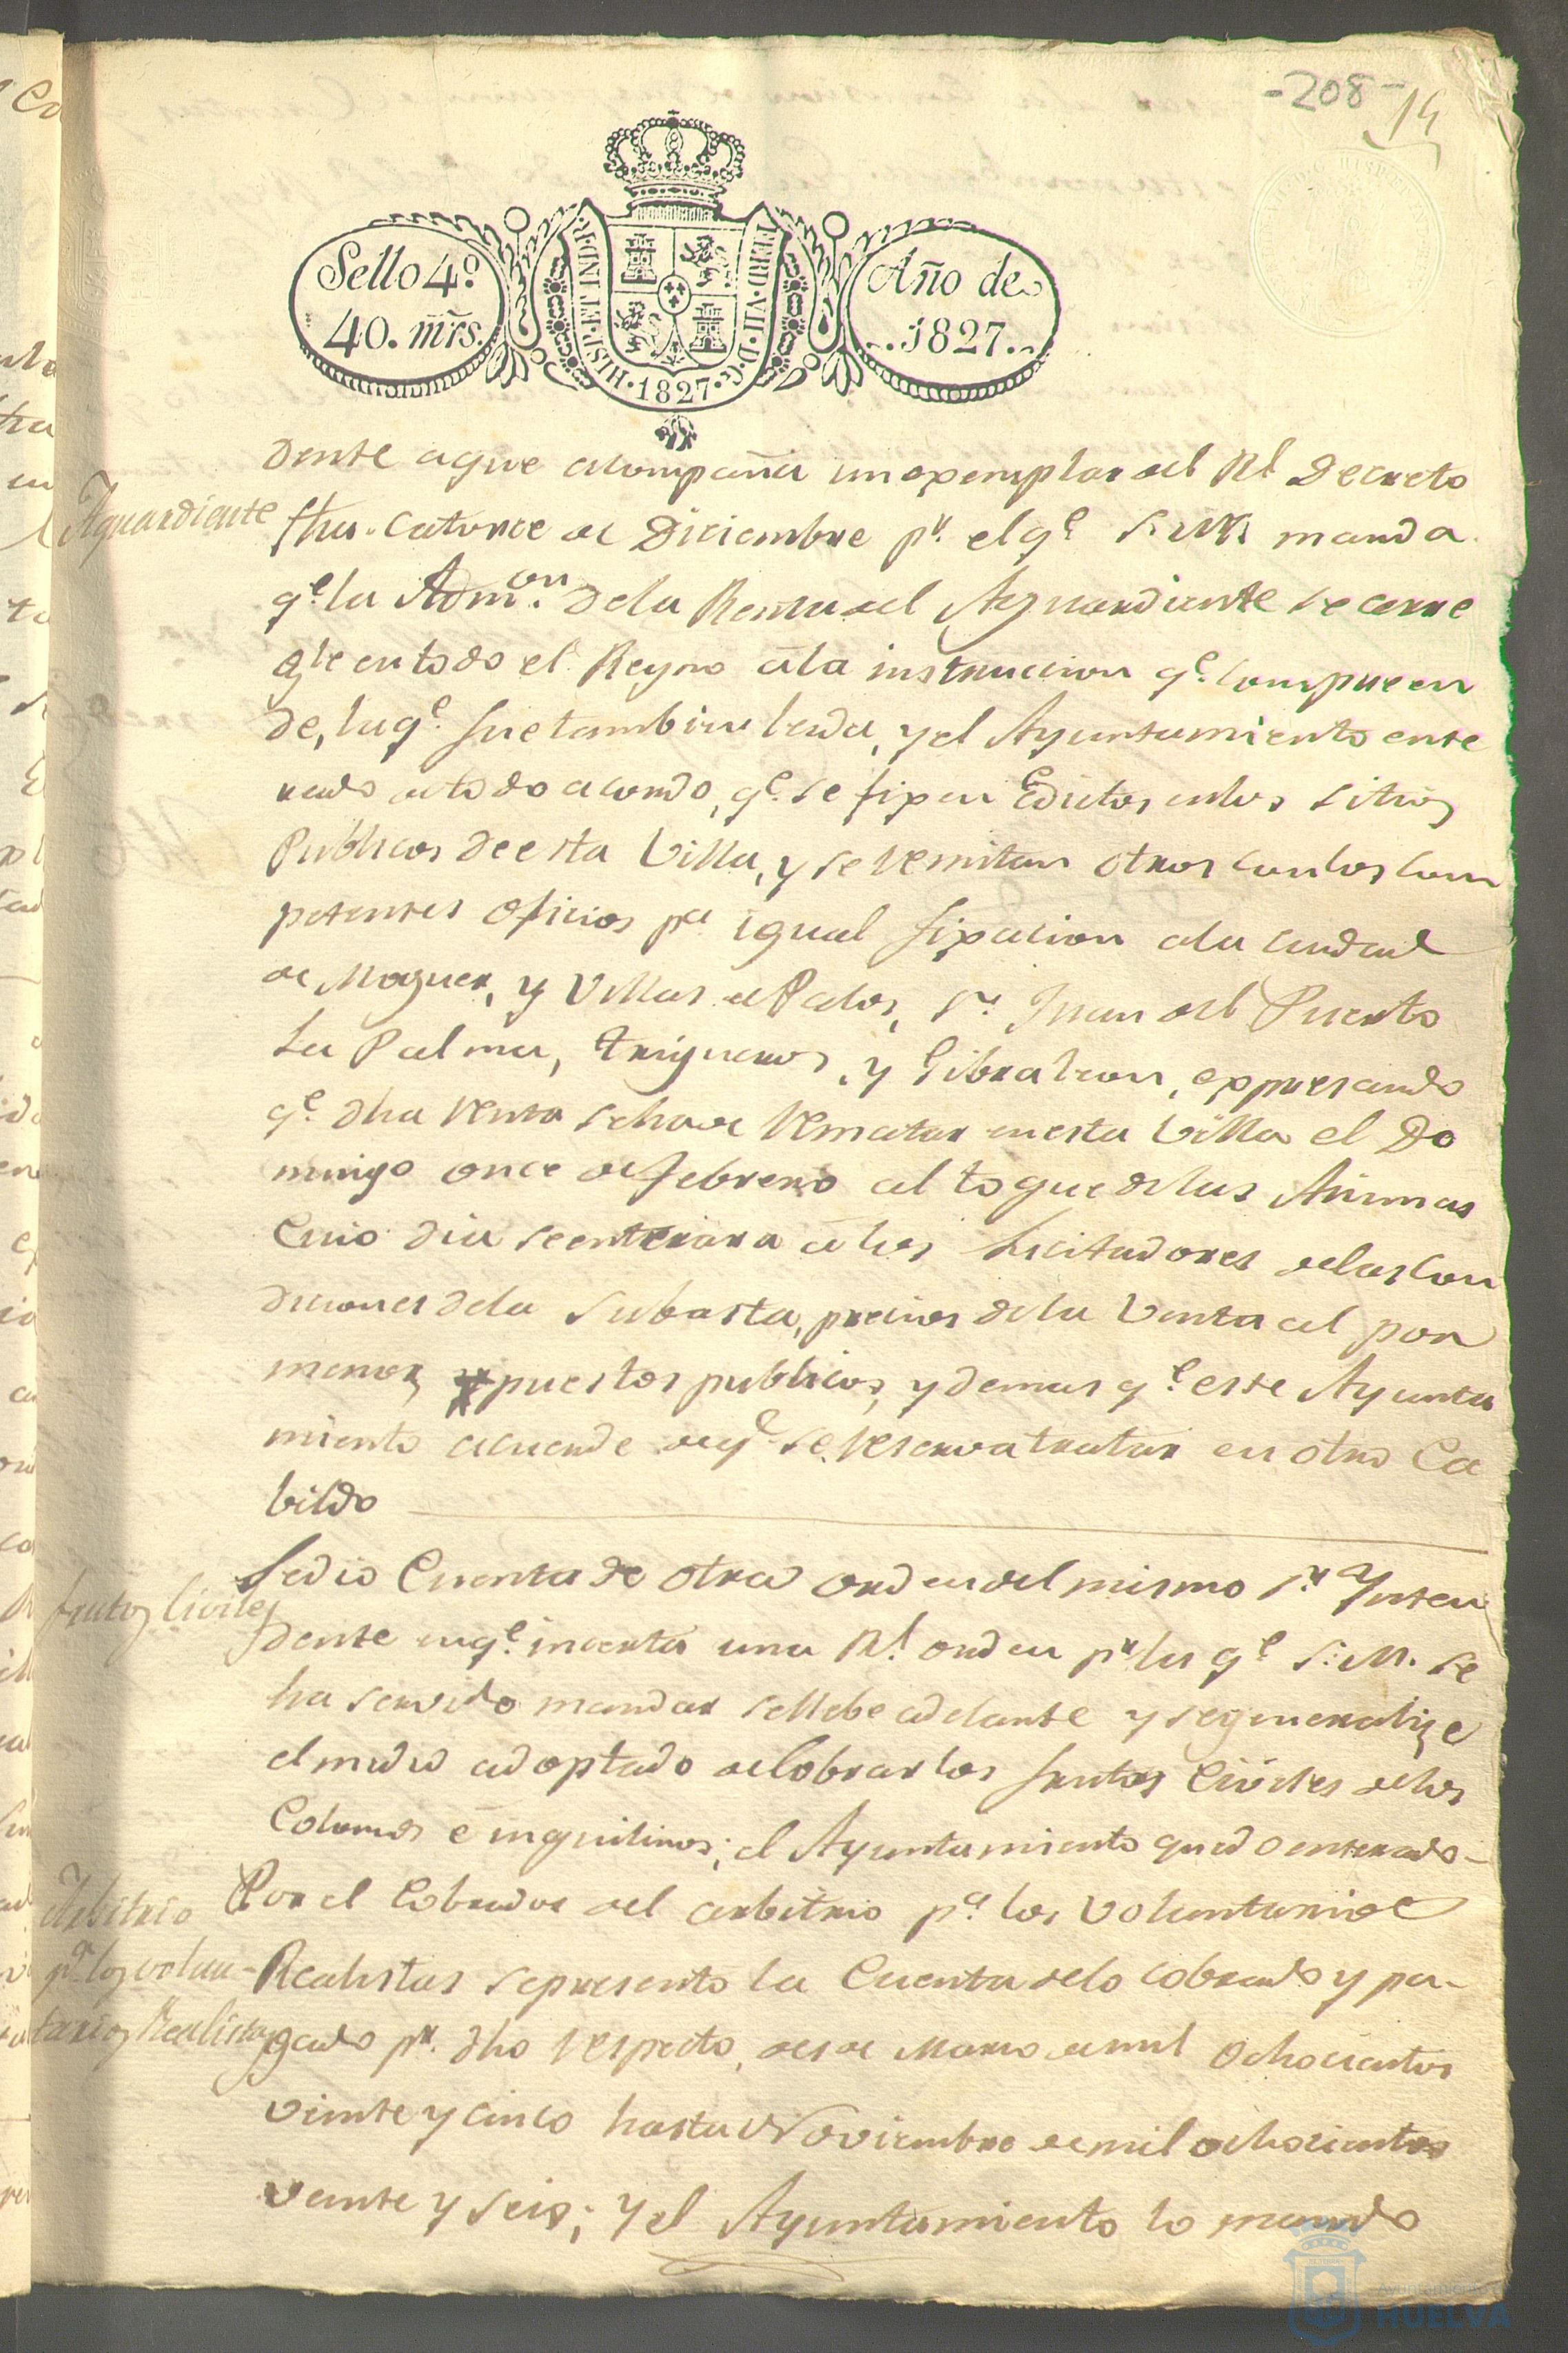 -208-
14
Sello 4º.
40. mrs.
HISP. ET IND. R.
FERD. VII. D. G.
1827
Año de
1827.
dente a que acompaña un exemplar del Rl Decreto
Aguardiente
fha. Catorce de Diciembre pr. el qe. S.M. manda
qe. la Admon. de la Renta del Aguardiente se arre
gle en todo el Reyno a la instruccion qe. compreen
de, la qe. fue tambien leida, y el Ayuntamiento ente
rado de todo acordo, qe. se fixen Edictos en los sitios
Publicos de esta Villa, y se remitan otros con los com
petentes oficios pa. igual fixacion a la ciudad
de Moguer, y Villas de Palos, Sn. Juan del Puerto
La Palma, Trigueros, y Gibraleon, expresando
qe. dha renta se ha de rematar en esta Villa el Do
mingo once de febrero al toque de las Animas
Cuio dia se enterara a los Licitadores de las con
diciones de la Subasta, precios de la Venta al por
menor, puestos publicos, y demas qe. este Ayunta
miento acuerde de qe. se reserva tratar en otro Ca
bildo
Se dio Cuenta de otra orden del mismo Sr. Inten
frutos Civiles
dente en qe. inserta una Rl. orden pr. la qe. S.M. se
ha servido mandar se llebe adelante y se generalize
el medio adoptado de Cobrar los frutos Civiles de los
Colonos e inquilinos; el Ayuntamiento quedo enterado-
Arbitrio
Por el Cobrador del arbitrio pa. los Voluntarios
pa. los volun-
Realistas se presento la Cuenta de lo cobrado y pa-
tarios Realistas
gado pr. dho respecto, desde Marzo de mil ochocientos
veinte y cinco hasta Noviembre de mil ochocientos
veinte y seis; y el Ayuntamiento lo mando
Ayuntamiento
HUELVA